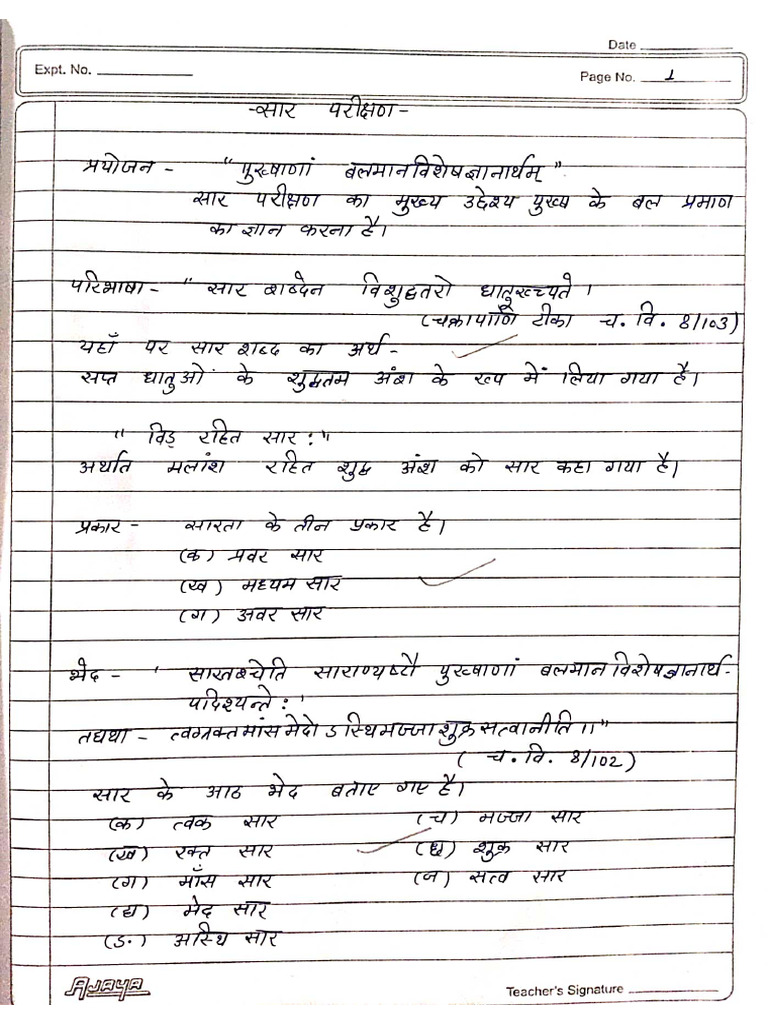 Date
Expt. No.
Page No. 1
-सार परीक्षण-
प्रयोजन - "पुरुषाणां बलमानविशेषज्ञानार्थम्"
सार परीक्षण का मुख्य उद्देश्य पुरुष के बल प्रमाण
का ज्ञान करना है।
परिभाषा - " सार शब्देन विशुद्धतरो धातुरुच्यते।
(चक्रापाणि टीका च. वि. 8/103)
यहाँ पर सार शब्द का अर्थ -
सप्त धातुओं के शुद्धतम अंश के रूप में लिया गया है।
" विड् रहित सार:"
अर्थात मलांश रहित शुद्ध अंश को सार कहा गया है।
प्रकार - सारता के तीन प्रकार है।
(क) प्रवर सार
(ख) मध्यम सार
(ग) अवर सार
भेद - ' सारतश्चेति साराण्यष्टौ पुरुषाणां बलमानविशेषज्ञानार्थ-
पदिश्यन्ते:'
तद्यथा - त्वग्रक्तमांसमेदोऽस्थिमज्जाशुक्रसत्वानीति।।"
( च. वि. 8/102)
सार के आठ भेद बताए गए है।
(क) त्वक सार (च) मज्जा सार
(ख) रक्त सार (छ) शुक्र सार
(ग) माँस सार (ज) सत्व सार
(घ) मेद सार
(ङ.) अस्थि सार
AJAYA
Teacher's Signature